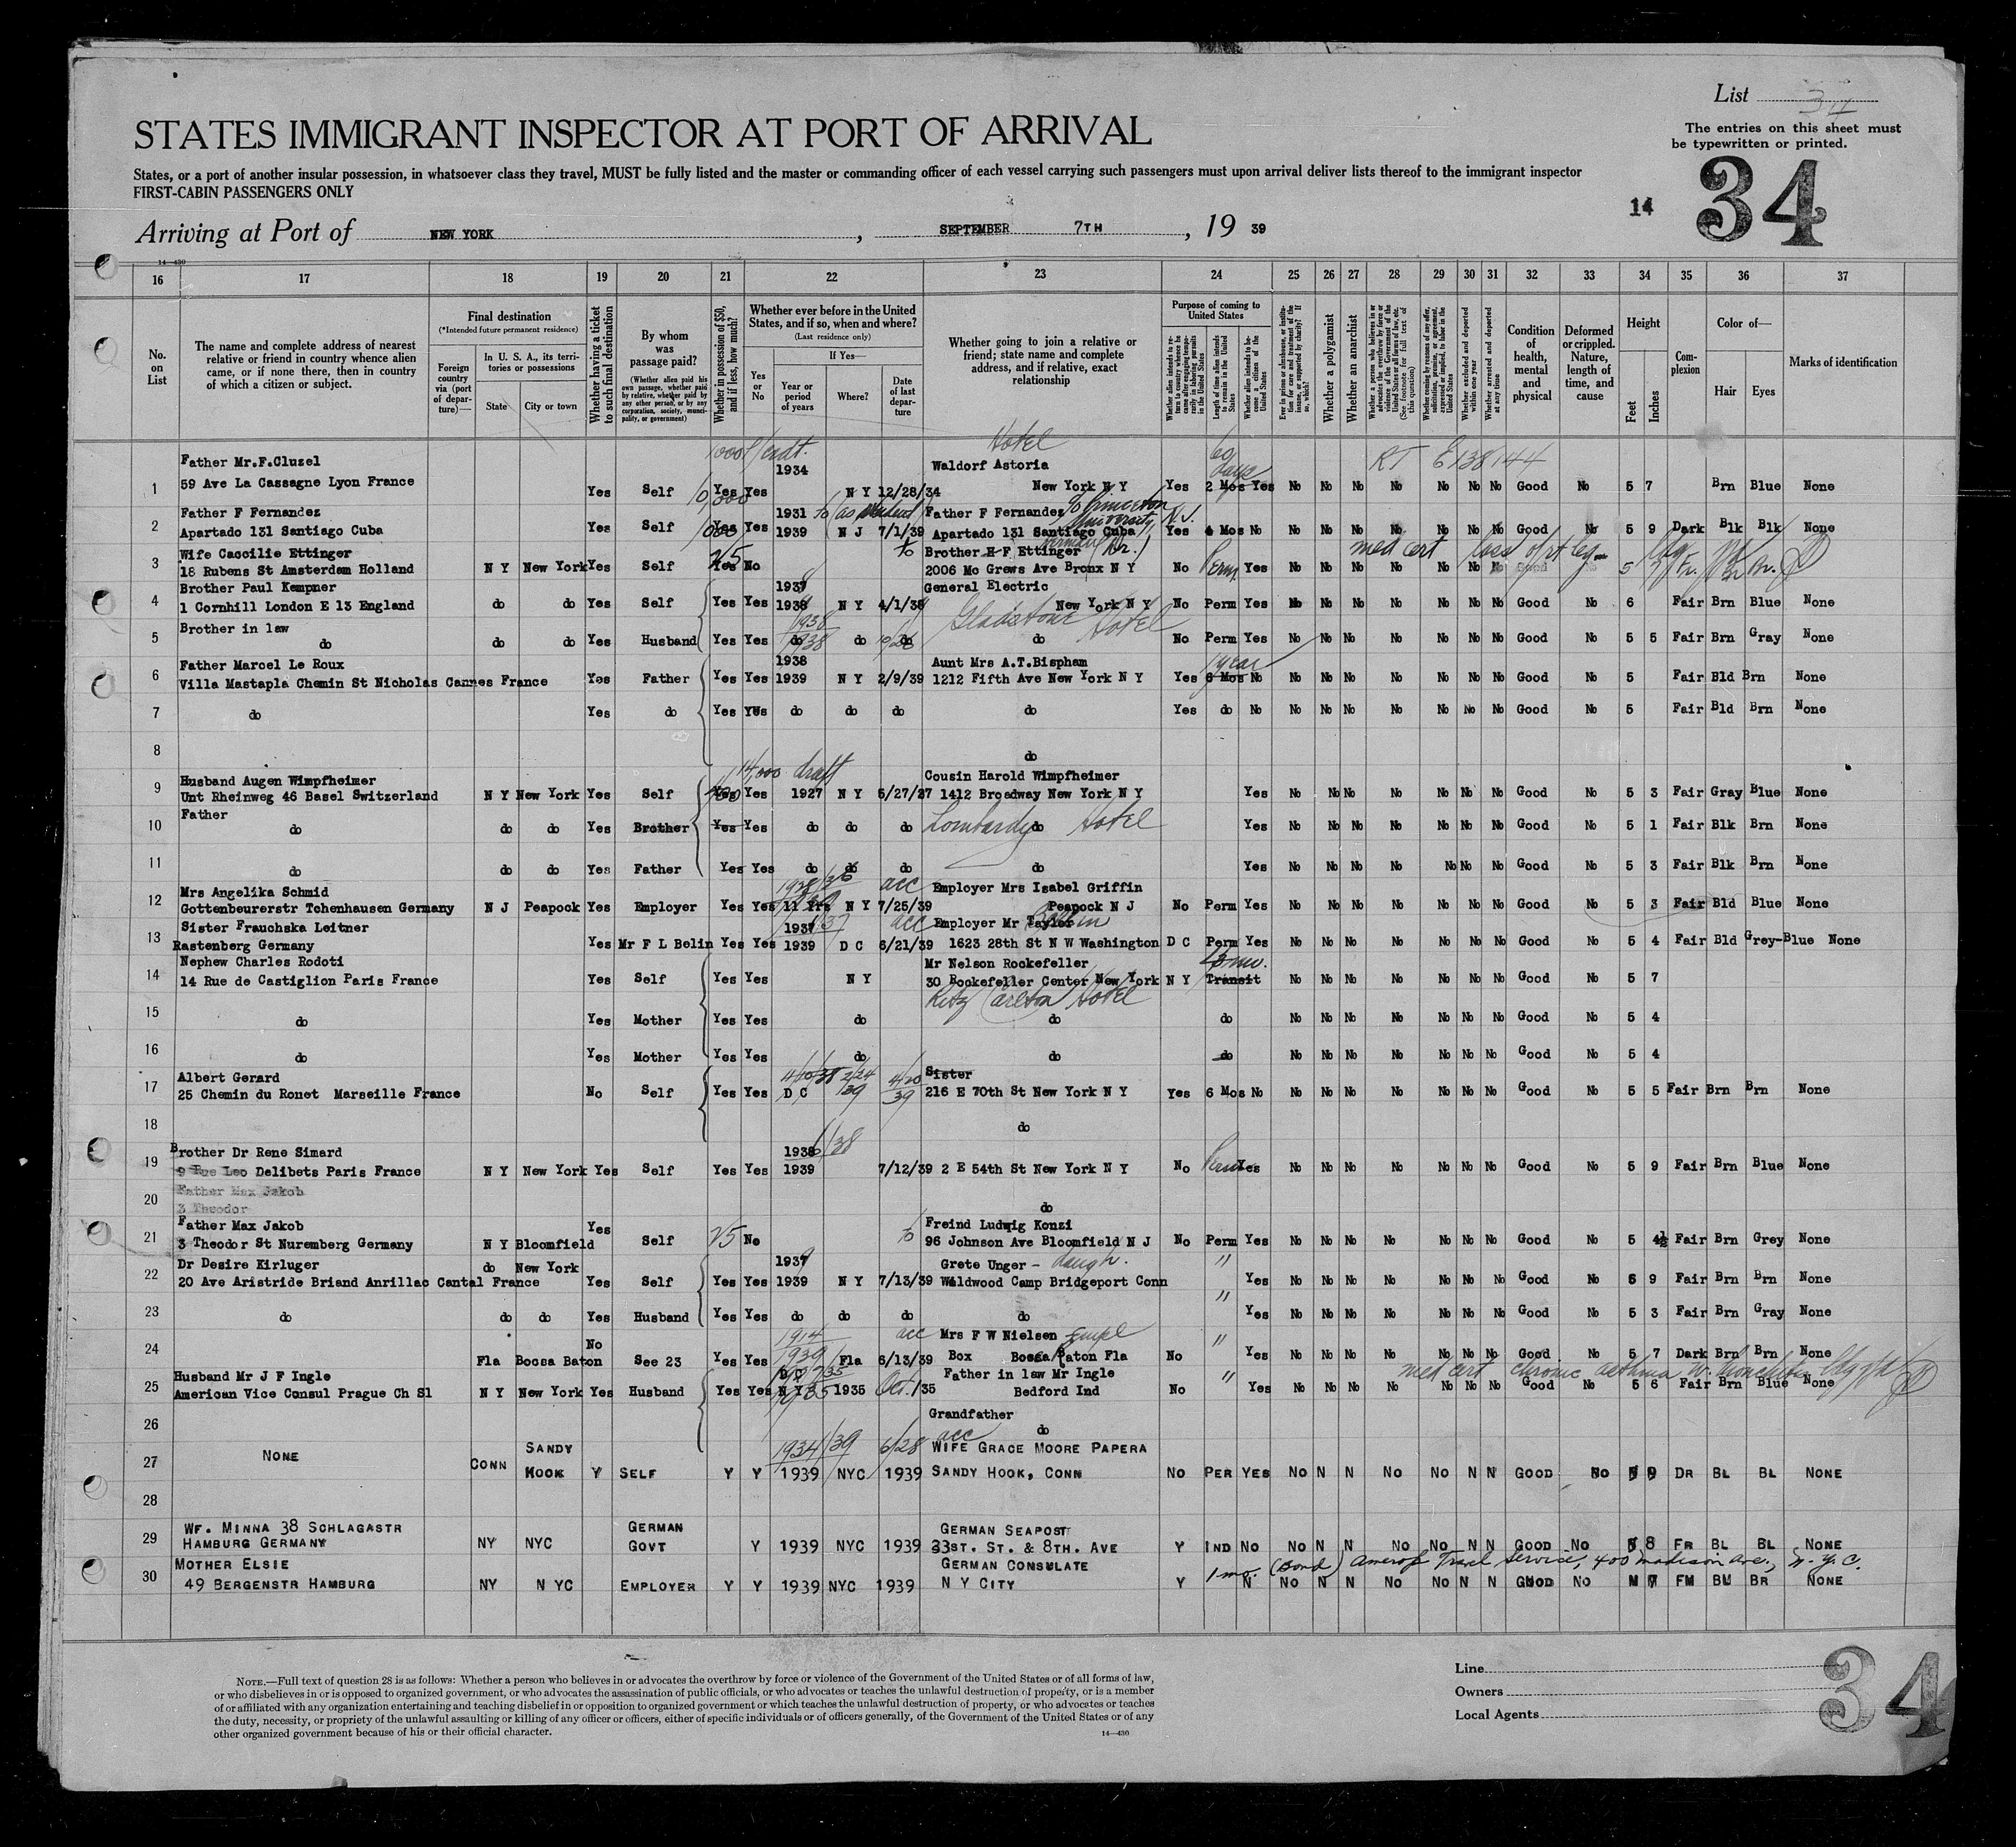 List 34
The entries on this sheet must
be typewritten or printed.
STATES IMMIGRANT INSPECTOR AT PORT OF ARRIVAL
States, or a port of another insular possession, in whatsoever class they travel, MUST be fully listed and the master or commanding officer of each vessel carrying such passengers must upon arrival deliver lists thereof to the immigrant inspector
FIRST-CABIN PASSENGERS ONLY
14 34
Arriving at Port of NEW YORK , SEPTEMBER 7TH , 19 39
14—430
16 17 18 19 20 21 22 23 24 25 26 27 28 29 30 31 32 33 34 35 36 37
No. on List
The name and complete address of nearest relative or friend in country whence alien came, or if none there, then in country of which a citizen or subject.
Final destination
(*Intended future permanent residence)
Foreign country via (port of departure)—
In U. S. A., its territories or possessions
State City or town
Whether having a ticket to such final destination
By whom was passage paid?
(Whether alien paid his own passage, whether paid by relative, whether paid by any other person, or by any corporation, society, municipality, or government)
Whether in possession of $50, and if less, how much?
Whether ever before in the United States, and if so, when and where?
(Last residence only)
Yes or No
If Yes—
Year or period of years Where? Date of last departure
Whether going to join a relative or friend; state name and complete address, and if relative, exact relationship
Purpose of coming to United States
Length of time alien intends to remain in the United States
Whether alien intends to become a citizen of the United States
Whether a polygamist
Whether an anarchist
Whether excluded and deported within one year
Whether arrested and deported at any time
Condition of health, mental and physical
Deformed or crippled. Nature, length of time, and cause
Height
Feet Inches
Complexion
Color of—
Hair Eyes
Marks of identification
1000 Hotel 60 days RT E138144
Father Mr.F.Cluzel 1934 Waldorf Astoria
1 59 Ave La Cassagne Lyon France Yes Self Yes Yes N Y 12/28/34 New York N Y Yes 2 Mos Yes No No No No No No No Good No 5 7 Brn Blue None
Father F Fernandez 1931 as student Father F Fernandez % Princeton University, N.J.
2 Apartado 131 Santiago Cuba Yes Self Yes Yes 1939 N J 7/1/39 Apartado 131 Santiago Cuba Yes 4 Mos No No No No No No No No Good No 5 9 Dark Blk Blk None
Wife Caecilie Ettinger 25 Brother H F Ettinger (Dr.) med cert loss of rt leg
3 18 Rubens St Amsterdam Holland N Y New York Yes Self Yes No 2006 Mc Grews Ave Bronx N Y No Perm Yes
Brother Paul Kempner 1937 General Electric
4 1 Cornhill London E 13 England do do Yes Self Yes Yes 1938 N Y 4/1/38 New York N Y No Perm Yes No No No No No No No Good No 6 Fair Brn Blue None
Brother in law 1938 Gladstone Hotel
5 do do do Yes Husband Yes Yes do do do do No Perm Yes No No No No No No No Good No 5 5 Fair Brn Gray None
Father Marcel Le Roux 1938 Aunt Mrs A.T.Bispham 1 year
6 Villa Mastapla Chemin St Nicholas Cannes France Yes Father Yes Yes 1939 N Y 2/9/39 1212 Fifth Ave New York N Y Yes 6 Mos No No No No No No No No Good No 5 Fair Bld Brn None
7 do Yes do Yes Yes do do do do Yes do No No No No No No No No Good No 5 Fair Bld Brn None
8 do
Husband Augen Wimpfheimer 14,000 draft Cousin Harold Wimpfheimer
9 Unt Rheinweg 46 Basel Switzerland N Y New York Yes Self Yes Yes 1927 N Y 5/27/27 1412 Broadway New York N Y Yes No No No No No No No Good No 5 3 Fair Gray Blue None
Father
10 do do do Yes Brother Yes Yes do do do Lombardy do Hotel Yes No No No No No No No Good No 5 1 Fair Blk Brn None
11 do do do Yes Father Yes Yes do do do do Yes No No No No No No No Good No 5 3 Fair Blk Brn None
Mrs Angelika Schmid acc Employer Mrs Isabel Griffin
12 Gottenbeurerstr Tchenhausen Germany N J Peapock Yes Employer Yes Yes 11 Yrs N Y 7/25/39 Peapock N J No Perm Yes No No No No No No No Good No 5 3 Fair Bld Blue None
Sister Frauchska Leitner 1937 acc Employer Mr Taylor Belin
13 Rastenberg Germany Yes Mr F L Belin Yes Yes 1939 D C 6/21/39 1623 28th St N W Washington D C Perm Yes No No No No No No No Good No 5 4 Fair Bld Grey-Blue None
Nephew Charles Rodoti Mr Nelson Rockefeller 3 mo.
14 14 Rue de Castiglion Paris France Yes Self Yes Yes N Y 30 Rockefeller Center New York N Y Transit No No No No No No No Good No 5 7
Ritz Carlton Hotel
15 do Yes Mother Yes Yes do do do No No No No No No No Good No 5 4
16 do Yes Mother Yes Yes do do do No No No No No No No Good No 5 4
Albert Gerard 11/10/38 2/24/39 4/20/39 Sister
17 25 Chemin du Rouet Marseille France No Self Yes Yes D C 216 E 70th St New York N Y Yes 6 Mos No No No No No No No No Good No 5 5 Fair Brn Brn None
18 do
Brother Dr Rene Simard 1938
19 9 Rue Leo Delibets Paris France N Y New York Yes Self Yes Yes 1939 7/12/39 2 E 54th St New York N Y No Perm Yes No No No No No No No Good No 5 9 Fair Brn Blue None
Father Max Jakob
20 3 Theodor do
Father Max Jakob Yes Freind Ludwig Konzi
21 3 Theodor St Nuremberg Germany N Y Bloomfield Self 25 No 96 Johnson Ave Bloomfield N J No Perm Yes No No No No No No No Good No 5 4½ Fair Brn Grey None
Dr Desire Kirluger do New York 1937 Grete Unger - daugh. "
22 20 Ave Aristride Briand Anrillac Cantal France Yes Self Yes Yes 1939 N Y 7/13/39 Waldwood Camp Bridgeport Conn Yes No No No No No No No Good No 5 9 Fair Brn Brn None
23 do do do Yes Husband Yes Yes do do do do " Yes No No No No No No No Good No 5 3 Fair Brn Gray None
No 1914 acc Mrs F W Nielsen Empl "
24 Fla Boosa Baton See 23 Yes Yes 1939 Fla 6/13/39 Box Bocca Raton Fla No Yes No No No No No No No Good No 5 7 Dark Brn Brn None
Husband Mr J F Ingle D C Father in law Mr Ingle " med cert chronic asthma
25 American Vice Consul Prague Ch Sl N Y New York Yes Husband Yes Yes N Y 1935 Oct. 1935 Bedford Ind No Yes No No No No No No No Good No 5 6 Fair Brn Blue None
Grandfather
26 do
SANDY 1934/39 6/28 acc WIFE GRACE MOORE PAPERA
27 NONE CONN HOOK Y SELF Y Y 1939 NYC 1939 SANDY HOOK, CONN NO PER YES NO N N NO NO N N GOOD NO 5 9 DR BL BL NONE
28
WF. MINNA 38 SCHLAGASTR GERMAN GERMAN SEAPOST
29 HAMBURG GERMANY NY NYC GOVT Y 1939 NYC 1939 33ST. ST. & 8TH. AVE Y IND NO NO N N NO NO N N GOOD NO 5 8 FR BL BL NONE
MOTHER ELSIE GERMAN CONSULATE 1 mo. (Bond) Amerop Travel Service, 400 Madison Ave., N.Y.C.
30 49 BERGENSTR HAMBURG NY N YC EMPLOYER Y Y 1939 NYC 1939 N Y CITY Y N NO N N NO NO N N GOOD NO FM BR NONE
NOTE.—Full text of question 28 is as follows: Whether a person who believes in or advocates the overthrow by force or violence of the Government of the United States or of all forms of law,
or who disbelieves in or is opposed to organized government, or who advocates the assassination of public officials, or who advocates or teaches the unlawful destruction of property, or is a member
of or affiliated with any organization entertaining and teaching disbelief in or opposition to organized government or which teaches the unlawful destruction of property, or who advocates or teaches
the duty, necessity, or propriety of the unlawful assaulting or killing of any officer or officers, either of specific individuals or of officers generally, of the Government of the United States or of any
other organized government because of his or their official character.
14—430
Line
Owners
Local Agents
34